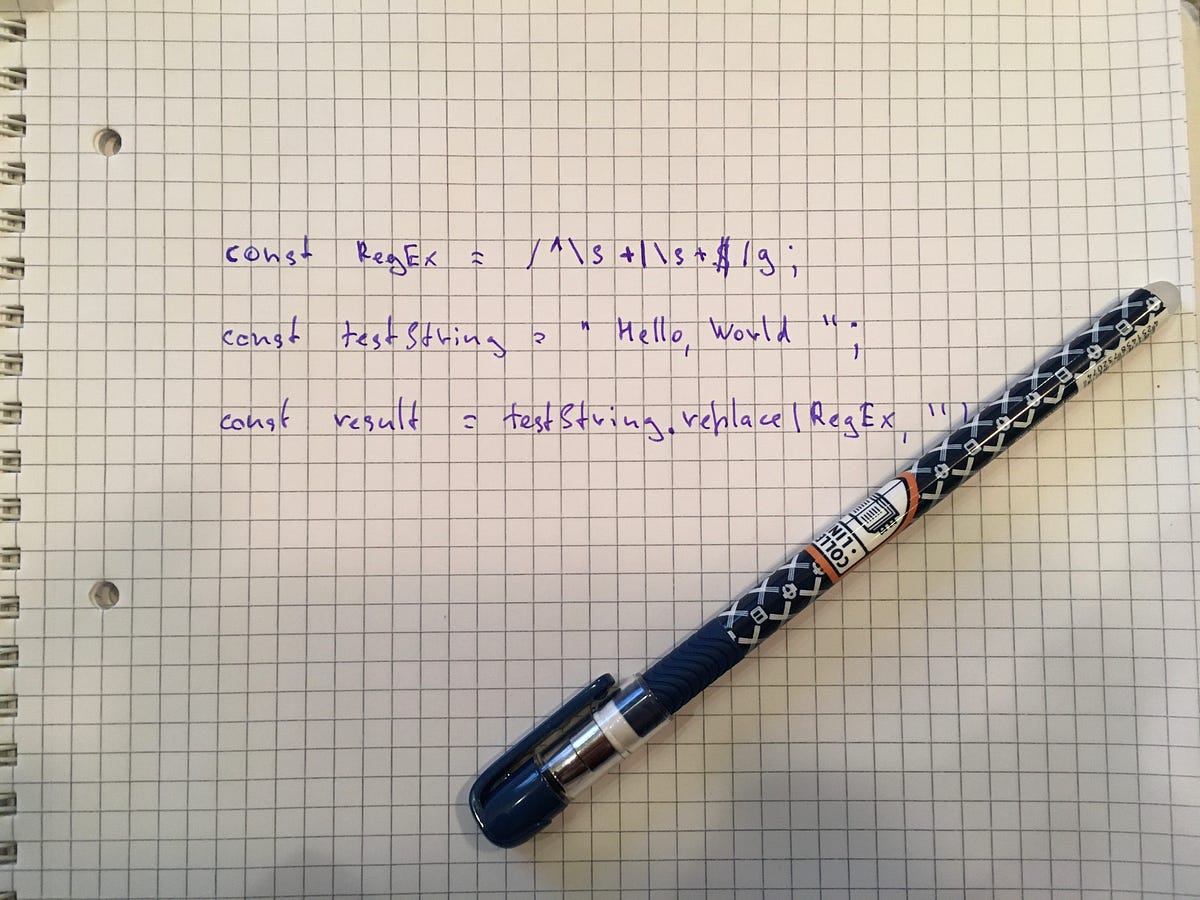 const RegEx = /^\s+|\s+$/g;
const testString = " Hello, World ";
const result = testString.replace(RegEx, "")
COLLE
LIN